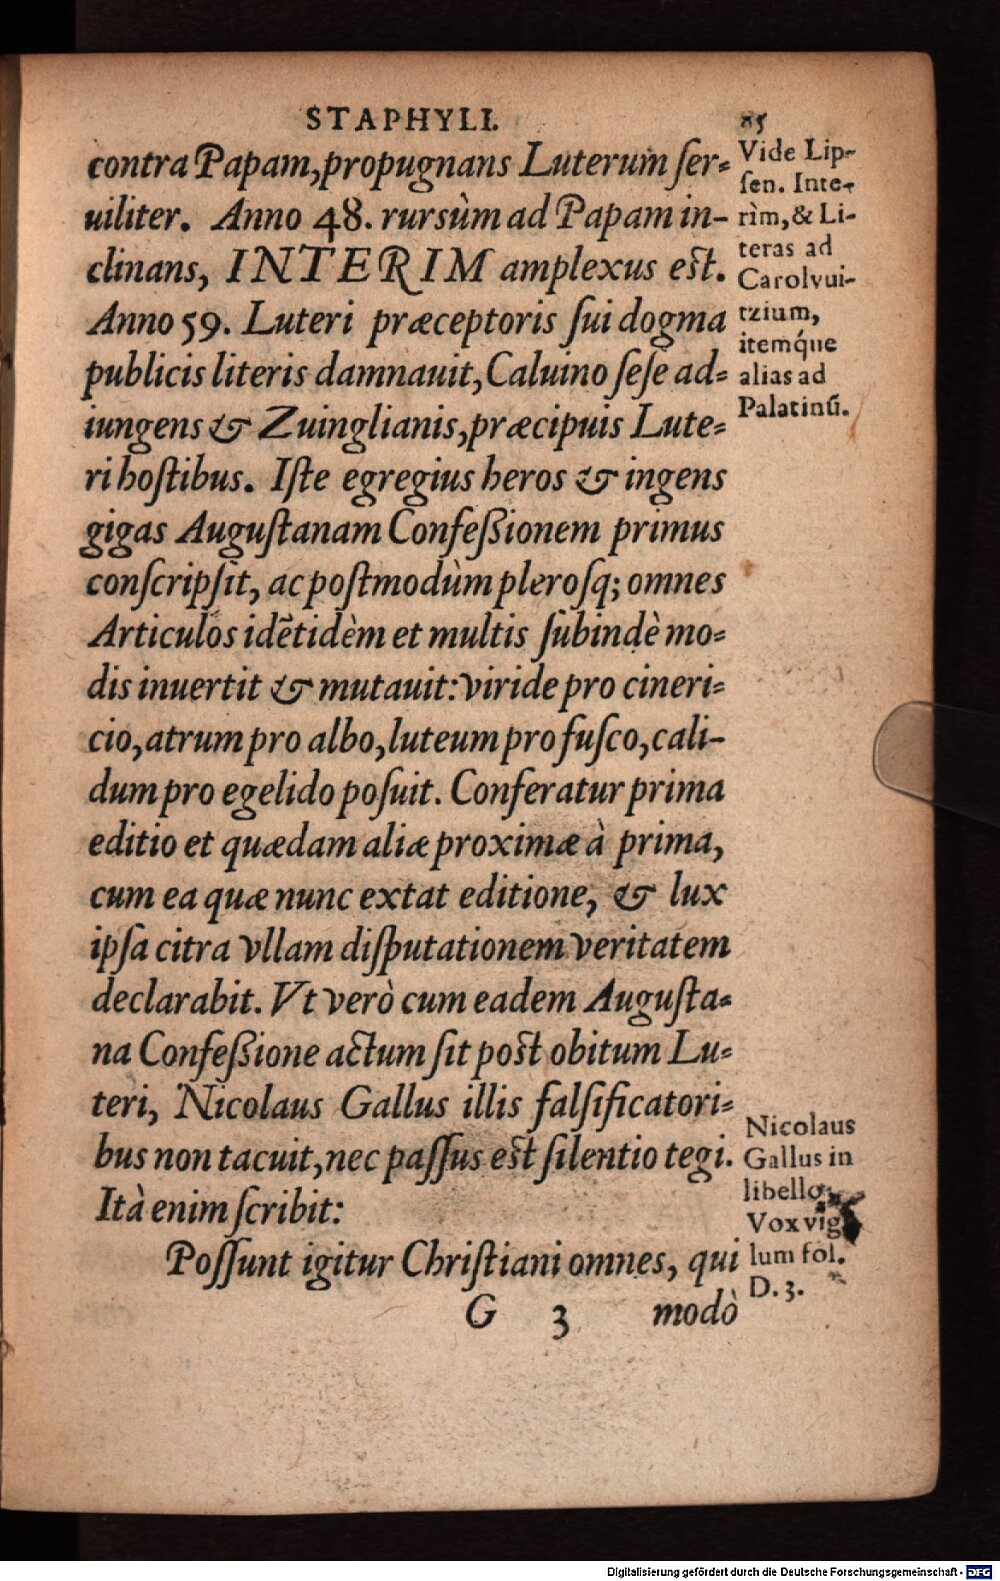 STAPHYLI. 85
contra Papam, propugnans Luterum ser-
uiliter. Anno 48. rursùm ad Papam in-
clinans, INTERIM amplexus est.
Anno 59. Luteri præceptoris sui dogma
publicis literis damnauit, Caluino sese ad-
iungens & Zuinglianis, præcipuis Lute-
ri hostibus. Iste egregius heros & ingens
gigas Augustanam Confeßionem primus
conscripsit, ac postmodùm plerosq; omnes
Articulos idẽtidèm et multis subindè mo-
dis inuertit & mutauit: viride pro cineri-
cio, atrum pro albo, luteum pro fusco, cali-
dum pro egelido posuit. Conferatur prima
editio et quædam aliæ proximæ à prima,
cum ea quæ nunc extat editione, & lux
ipsa citra vllam disputationem veritatem
declarabit. Vt verò cum eadem Augusta-
na Confeßione actum sit post obitum Lu-
teri, Nicolaus Gallus illis falsificatori-
bus non tacuit, nec passus est silentio tegi.
Ità enim scribit:
Possunt igitur Christiani omnes, qui
G 3 modò
Vide Lip-
sen. Inte-
rìm, & Li-
teras ad
Carolvui-
tzium,
itemq́ue
alias ad
Palatinū.
Nicolaus
Gallus in
libello,
Vox vigi
lum fol.
D. 3.
Digitalisierung gefördert durch die Deutsche Forschungsgemeinschaft - DFG